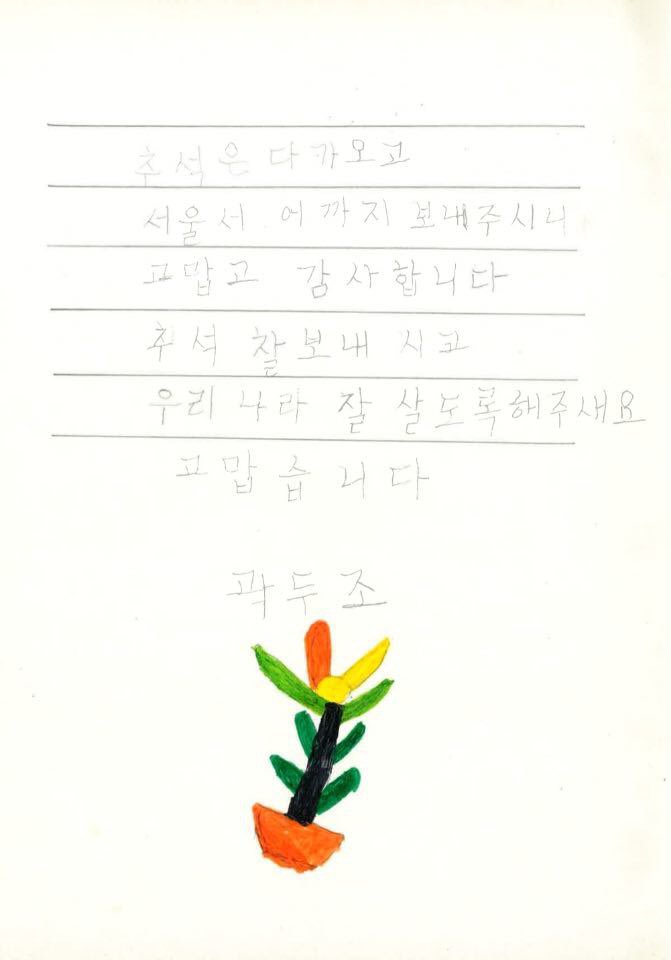 추석은 다카오고
서울서 어까지 보내주시니
고맙고 감사합니다
추석 찰보내 시고
우리 나라 잘 살도록해주새요
고맙습니다
곽두조